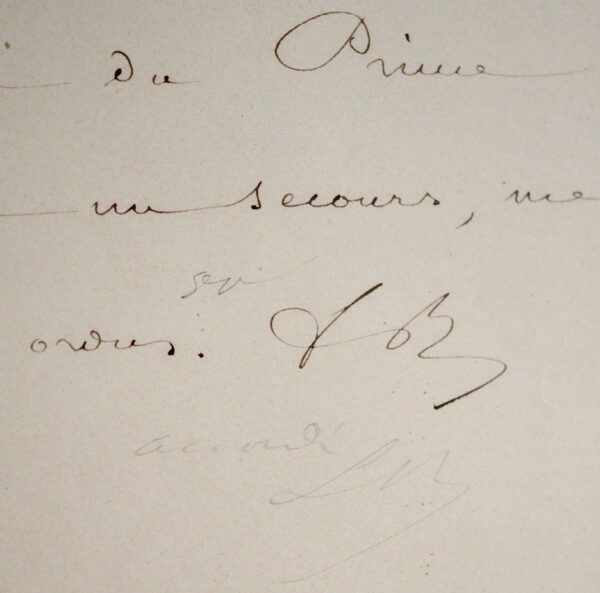 du Prince
un secours, me
ses
ordres. LB
accordé
LB